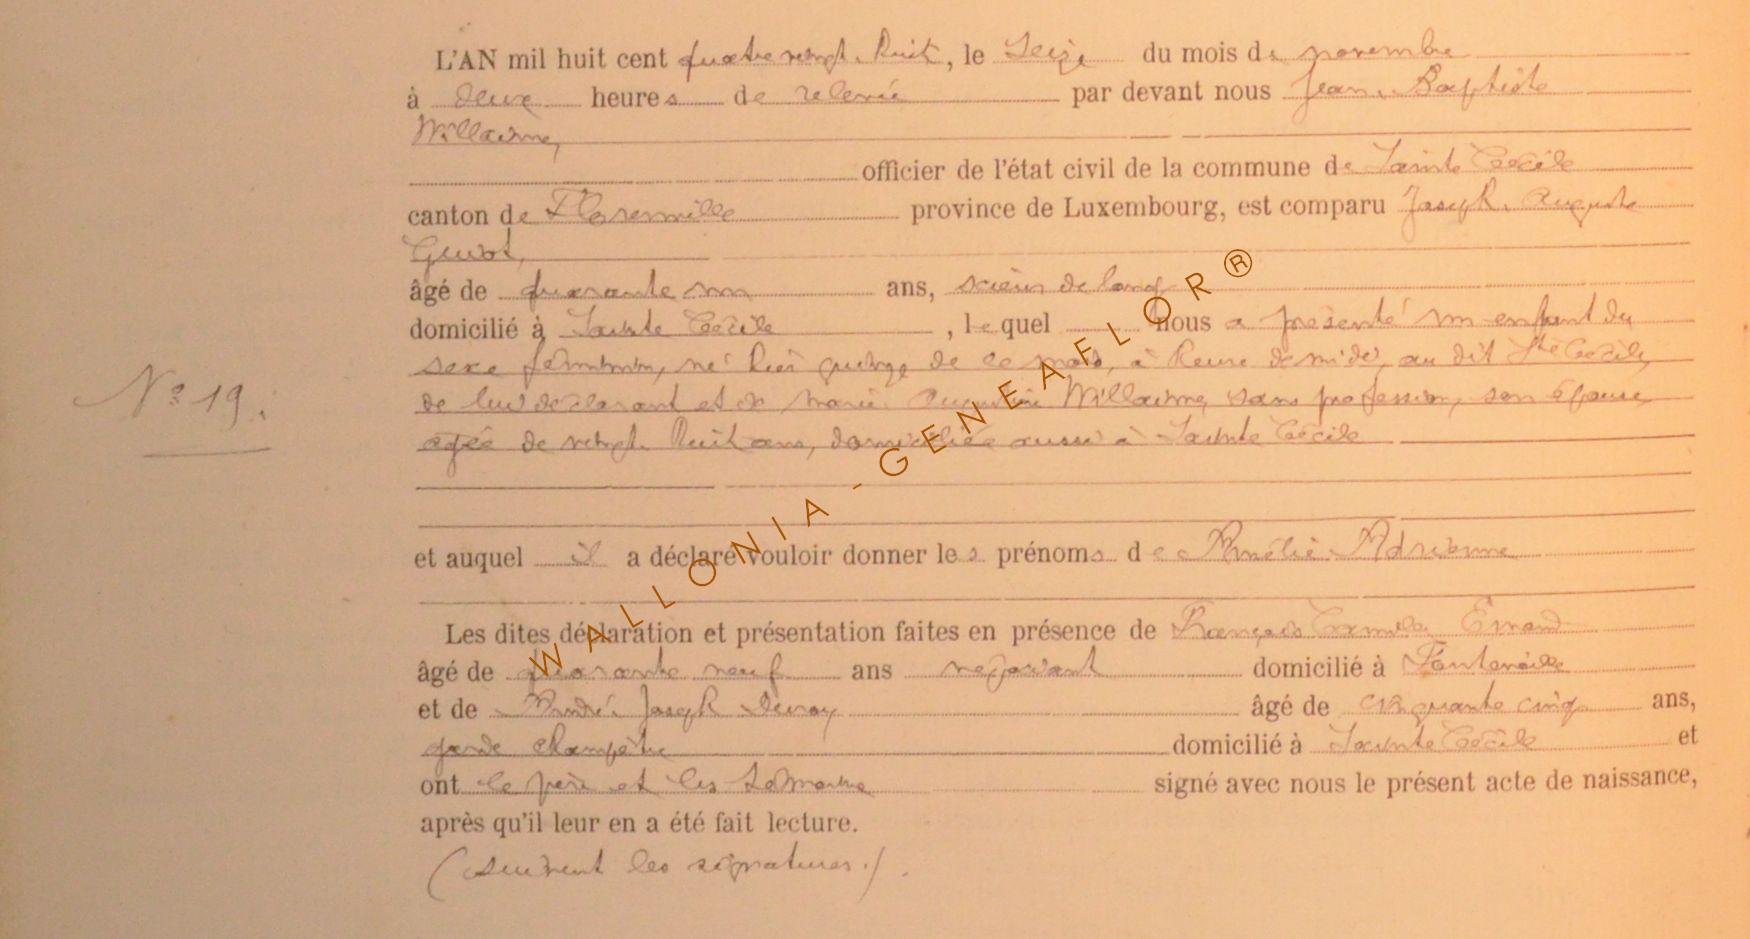 L'AN mil huit cent quatre vingt. huit, le Seize du mois de novembre
à deux heures de relevée par devant nous Jean. Baptiste
Willaime,
officier de l'état civil de la commune de Sainte Cécile
canton de Florenville province de Luxembourg, est comparu Joseph. Auguste
Guiot,
âgé de quarante un ans, scieur de long
domicilié à Sainte Cécile, lequel nous a présenté un enfant du
N° 19.
sexe féminin, né hier quinze de ce mois, à heure de midi, au dit Ste Cécile,
de lui déclarant et de Marie. Augustine Willaime, sans profession, son épouse,
agée de vingt. huit ans, domiciliée aussi à Sainte Cécile
et auquel il a déclaré vouloir donner les prénoms de Amélie. Adrienne
Les dites déclaration et présentation faites en présence de François Camille
âgé de quarante neuf ans négociant domicilié à Fontenoille
et de André Joseph âgé de cinquante cinq ans,
garde champêtre domicilié à Sainte Cécile et
ont le père et les témoins signé avec nous le présent acte de naissance,
après qu'il leur en a été fait lecture.
(suivent les signatures.)
WALLONIA-GENEAFLOR®